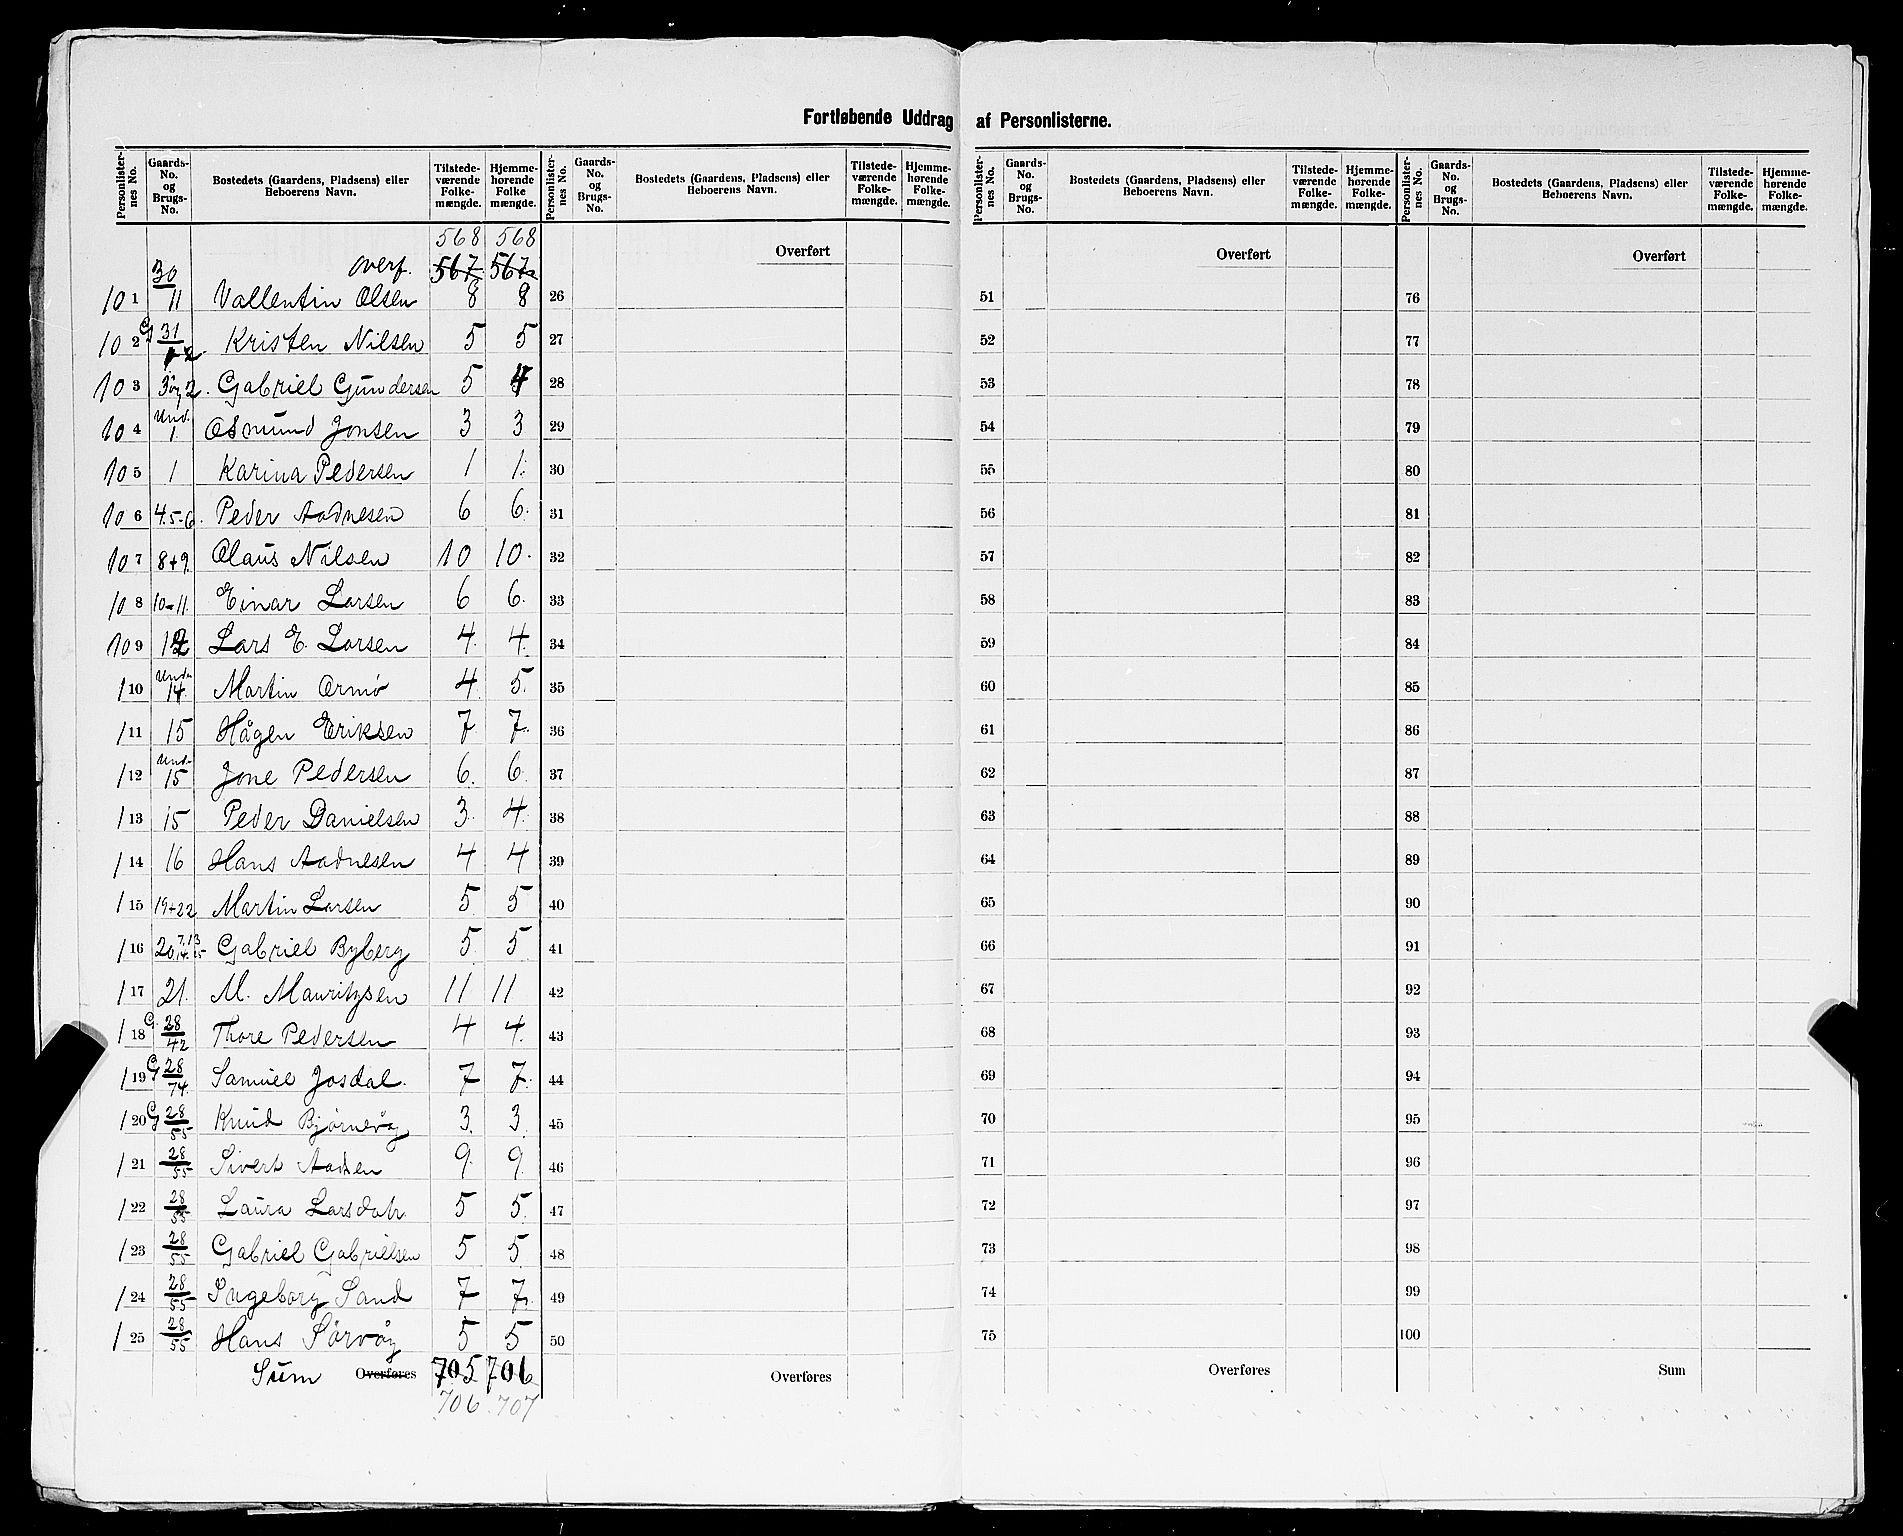 Fortløbende Uddrag af Personlisterne.
Personlister-nes No. | Gaards-No. og Brugs-No. | Bostedets (Gaardens, Pladsens) eller Beboerens Navn. | Tilstede-værende Folke-mængde. | Hjemme-hørende Folke mængde.
568 568
30 overf. 567 567
101 11 Vallentin Olsen 8 8
102 G 31/1-2. Kristen Nilsen 5 5
103 3 og 2. Gabriel Gundersen 5 4
104 Und. 1. Osmund Jonsen 3 3
105 1 Karina Pedersen 1 1.
106 4.5-6. Peder Aadnesen 6 6.
107 8+9. Olaus Nilsen 10 10.
108 10-11. Einar Larsen 6 6.
109 12 Lars E. Larsen 4. 4.
110 Und. 14. Martin Ormø 4. 5.
111 15 Hågen Eriksen 7. 7.
112 Und. 15 Jone Pedersen 6. 6.
113 15 Peder Danielsen 3. 4.
114 16 Hans Aadnesen 4 4
115 19+22 Martin Larsen 5. 5
116 20, 7.13 14. 25 Gabriel Byberg 5. 5
117 21. M. Mauritzsen 11 11
118 G. 28/42 Thore Pedersen 4 4.
119 G 28/74. Samuel Josdal. 7 7.
120 G 28/55 Knud Bjørnevåg 3. 3.
121 28/55 Sivert Aadsen 9. 9.
122 28/55 Laura Larsdatr. 5 5.
123 28/55 Gabriel Gabrielsen 5 5.
124 28/55 Ingeborg Sand 7 7.
125 28/55 Hans Sørvåg 5 5
Sum Overføres 705 706
706 707
Personlister-nes No. | Gaards-No. og Brugs-No. | Bostedets (Gaardens, Pladsens) eller Beboerens Navn. | Tilstede-værende Folke-mængde. | Hjemme-hørende Folke-mængde.
Overført
26
27
28
29
30
31
32
33
34
35
36
37
38
39
40
41
42
43
44
45
46
47
48
49
50
Overføres
Personlister-nes No. | Gaards-No. og Brugs-No. | Bostedets (Gaardens, Pladsens) eller Beboerens Navn. | Tilstede-værende Folke-mængde. | Hjemme-hørende Folke-mængde.
Overført
51
52
53
54
55
56
57
58
59
60
61
62
63
64
65
66
67
68
69
70
71
72
73
74
75
Overføres
Personlister-nes No. | Gaards-No. og Brugs-No. | Bostedets (Gaardens, Pladsens) eller Beboerens Navn. | Tilstede-værende Folke-mængde. | Hjemme-hørende Folke-mængde.
Overført
76
77
78
79
80
81
82
83
84
85
86
87
88
89
90
91
92
93
94
95
96
97
98
99
100
Sum